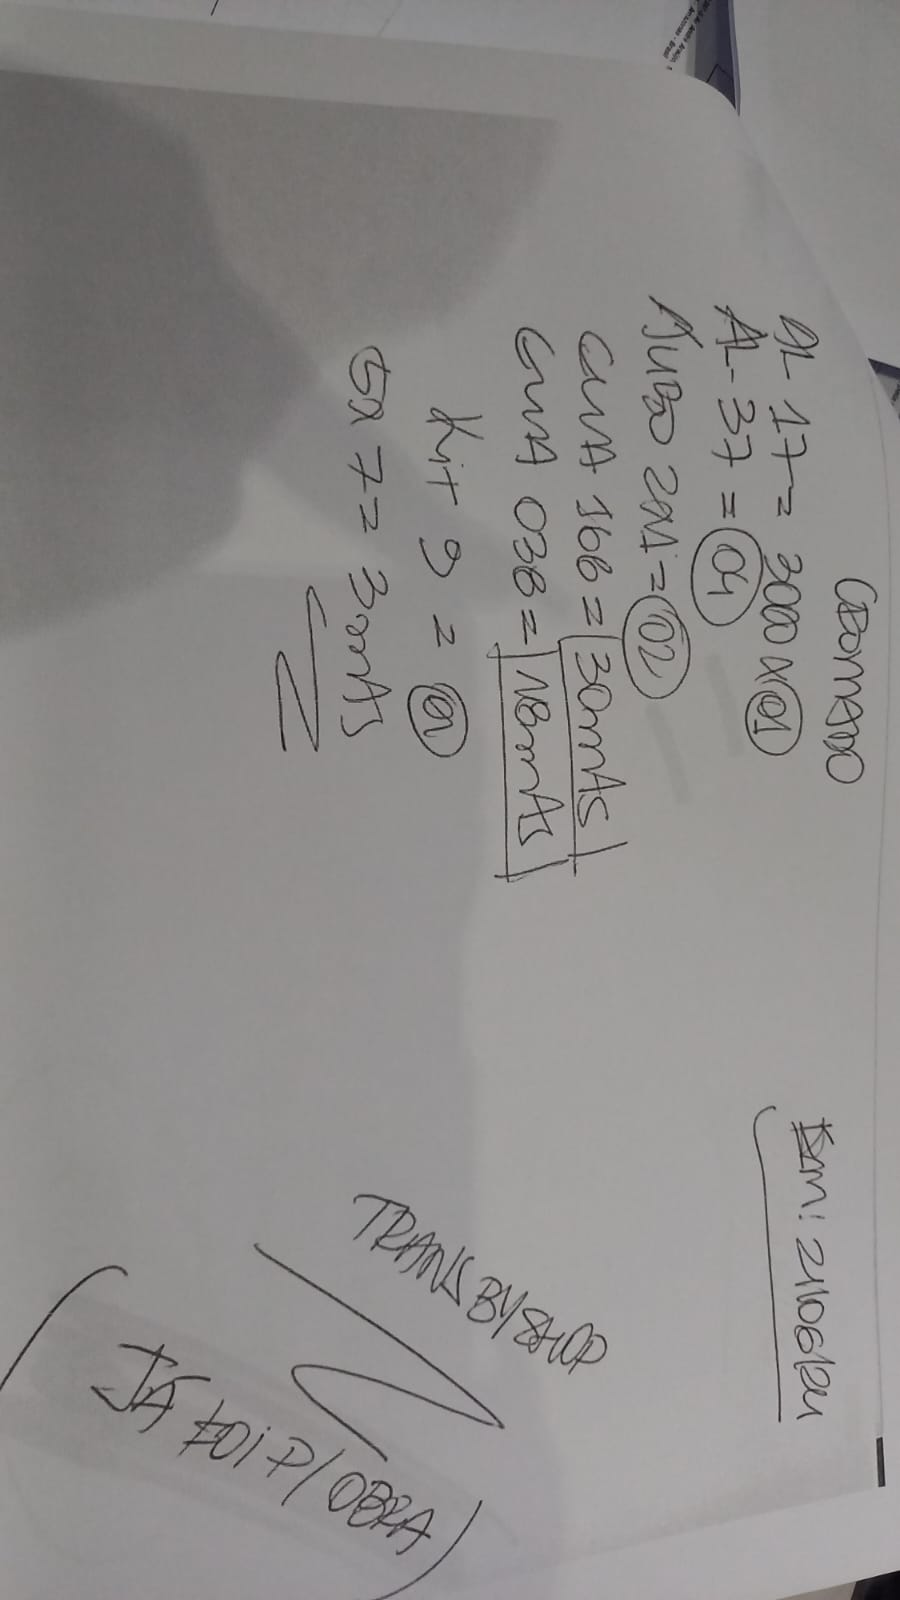 CROMADO
AL-17 = 3000 x 01
AL-37 = 04
TUBO 2M = 02
CUBA 166 = 30mts
CUBA 036 = 18mts
Kit 9 = 01
GR 7 = 3 mts
Em: 21/06/24
TRANSBYSHOP
JÁ FOI P/ OBRA